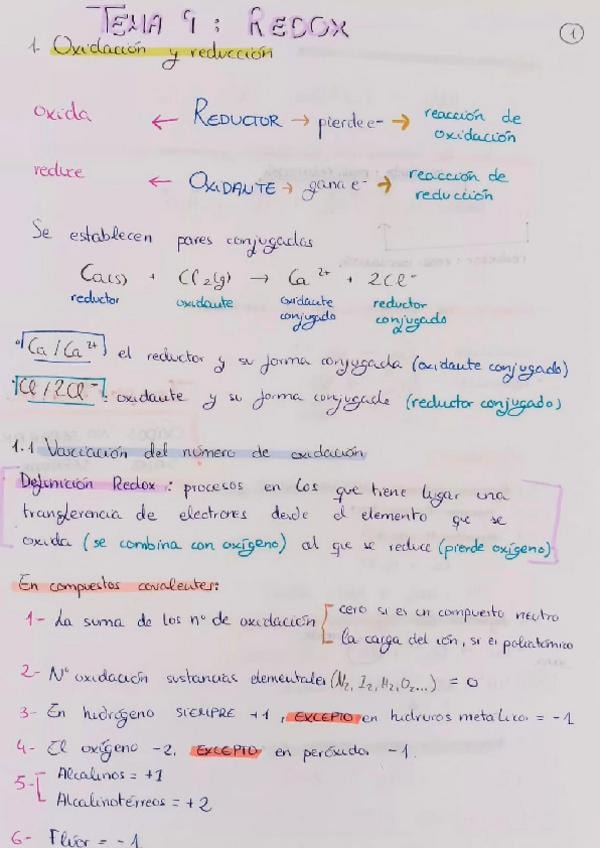 TEMA 9: REDOX
1
1. Oxidación y reducción
oxida ← REDUCTOR → pierde e- → reacción de oxidación
reduce ← OXIDANTE → gana e- → reacción de reducción
Se establecen pares conjugadas
Ca(s) + Cl2(g) → Ca 2+ + 2Cl-
reductor oxidante oxidante conjugado reductor conjugado
Ca / Ca2+ el reductor y su forma conjugada (oxidante conjugado)
Cl / 2Cl- : oxidante y su forma conjugada (reductor conjugado)
1.1 Variación del número de oxidación
Definición Redox: procesos en los que tiene lugar una
transferencia de electrones desde el elemento que se
oxida (se combina con oxígeno) al que se reduce (pierde oxígeno)
En compuestos covalentes:
1- La suma de los nº de oxidación
cero si es un compuesto neutro
la carga del ión, si es poliatómico
2- Nº oxidación sustancias elementales (N2, I2, H2, O2...) = 0
3- En hidrógeno SIEMPRE +1, EXCEPTO en hidruros metálico. = -1
4- El oxígeno -2, EXCEPTO en peróxido. -1.
5- Alcalinos = +1
Alcalinotérreos = +2
6- Flúor = -1